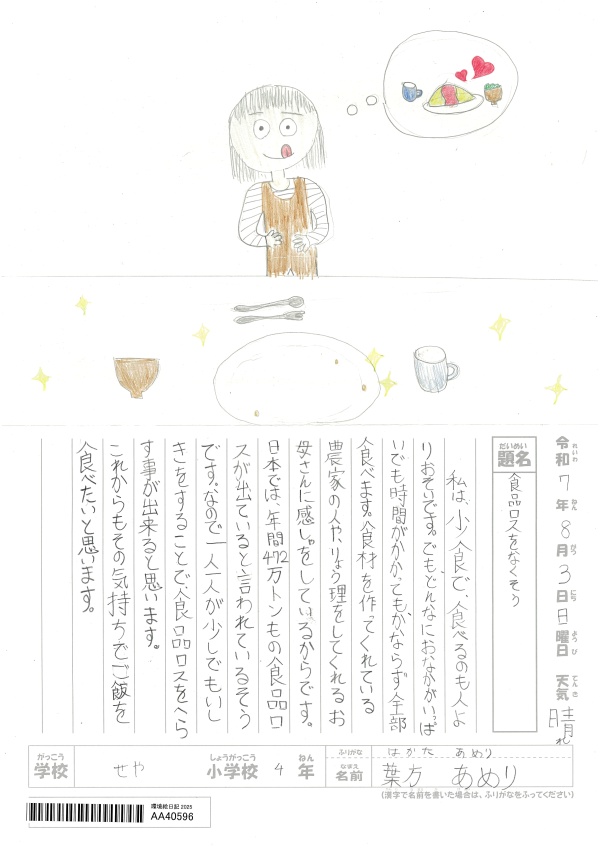 令和7年8月3日日曜日 天気 晴れ
れいわ ねん がつ にち ようび てんき
だいめい
題名
食品ロスをなくそう
私は、少食で、食べるのも人よ
りおそいです。でもどんなにおなかがいっぱ
いでも時間がかかってもかならず全部
食べます。食材を作ってくれている
農家の人や、りょう理をしてくれるお
母さんに感しゃをしているからです。
日本では、年間472万トンもの食品ロ
スが出ていると言われているそう
です。なので一人一人が少しでもいし
きをすることで、食品ロスをへら
す事が出来ると思います。
これからもその気持ちでご飯を
食べたいと思います。
がっこう しょうがっこう ねん
学校 せや 小学校 4年
ふりがな はかた あめり
なまえ
名前 葉方 あめり
(漢字で名前を書いた場合は、ふりがなをふってください)
環境絵日記 2025
AA40596